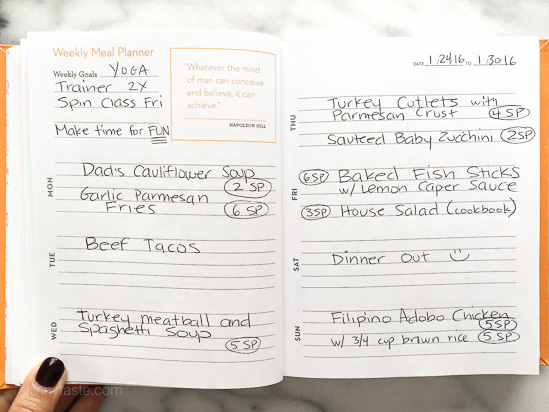 Weekly Meal Planner
Weekly Goals YOGA
Trainer 2X
Spin Class Fri
Make time for FUN
"Whatever the mind
of man can conceive
and believe, it can
achieve."
NAPOLEON HILL
MON
Dad's Cauliflower Soup
2 SP
Garlic Parmesan
Fries 6 SP
TUE
Beef Tacos
WED
Turkey meatball and
Spaghetti Soup
5 SP
skinnytaste.com
DATE 1/24/16 TO 1/30/16
THU
Turkey Cutlets with
Parmesan Crust 4 SP
Sauteed Baby Zucchini 2SP
FRI
6SP Baked Fish Sticks
w/ Lemon Caper Sauce
3SP House Salad (cookbook)
SAT
Dinner Out
SUN
Filipino Adobo Chicken
5SP
w/ 3/4 cup brown rice 5 SP